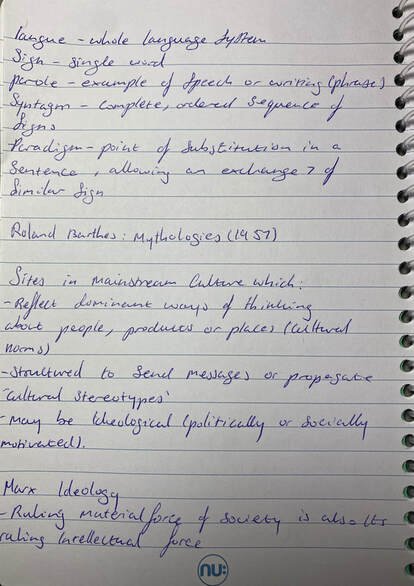 Langue - whole language system
Sign - single word
parole - example of speech or writing (phrase)
Syntagm - complete, ordered sequence of
Signs
Paradigm - point of substitution in a
Sentence, allowing an exchange of
Similar sign
Roland Barthes: Mythologies (1957)
Sites in mainstream culture which:
- Reflect dominant ways of thinking
about people, produces or places (cultural
norms)
- Structured to send messages or propagate
'cultural stereotypes'
- May be ideological (politically or socially
motivated).
Marx Ideology
- Ruling material force of society is also its
ruling intellectual force
nu: